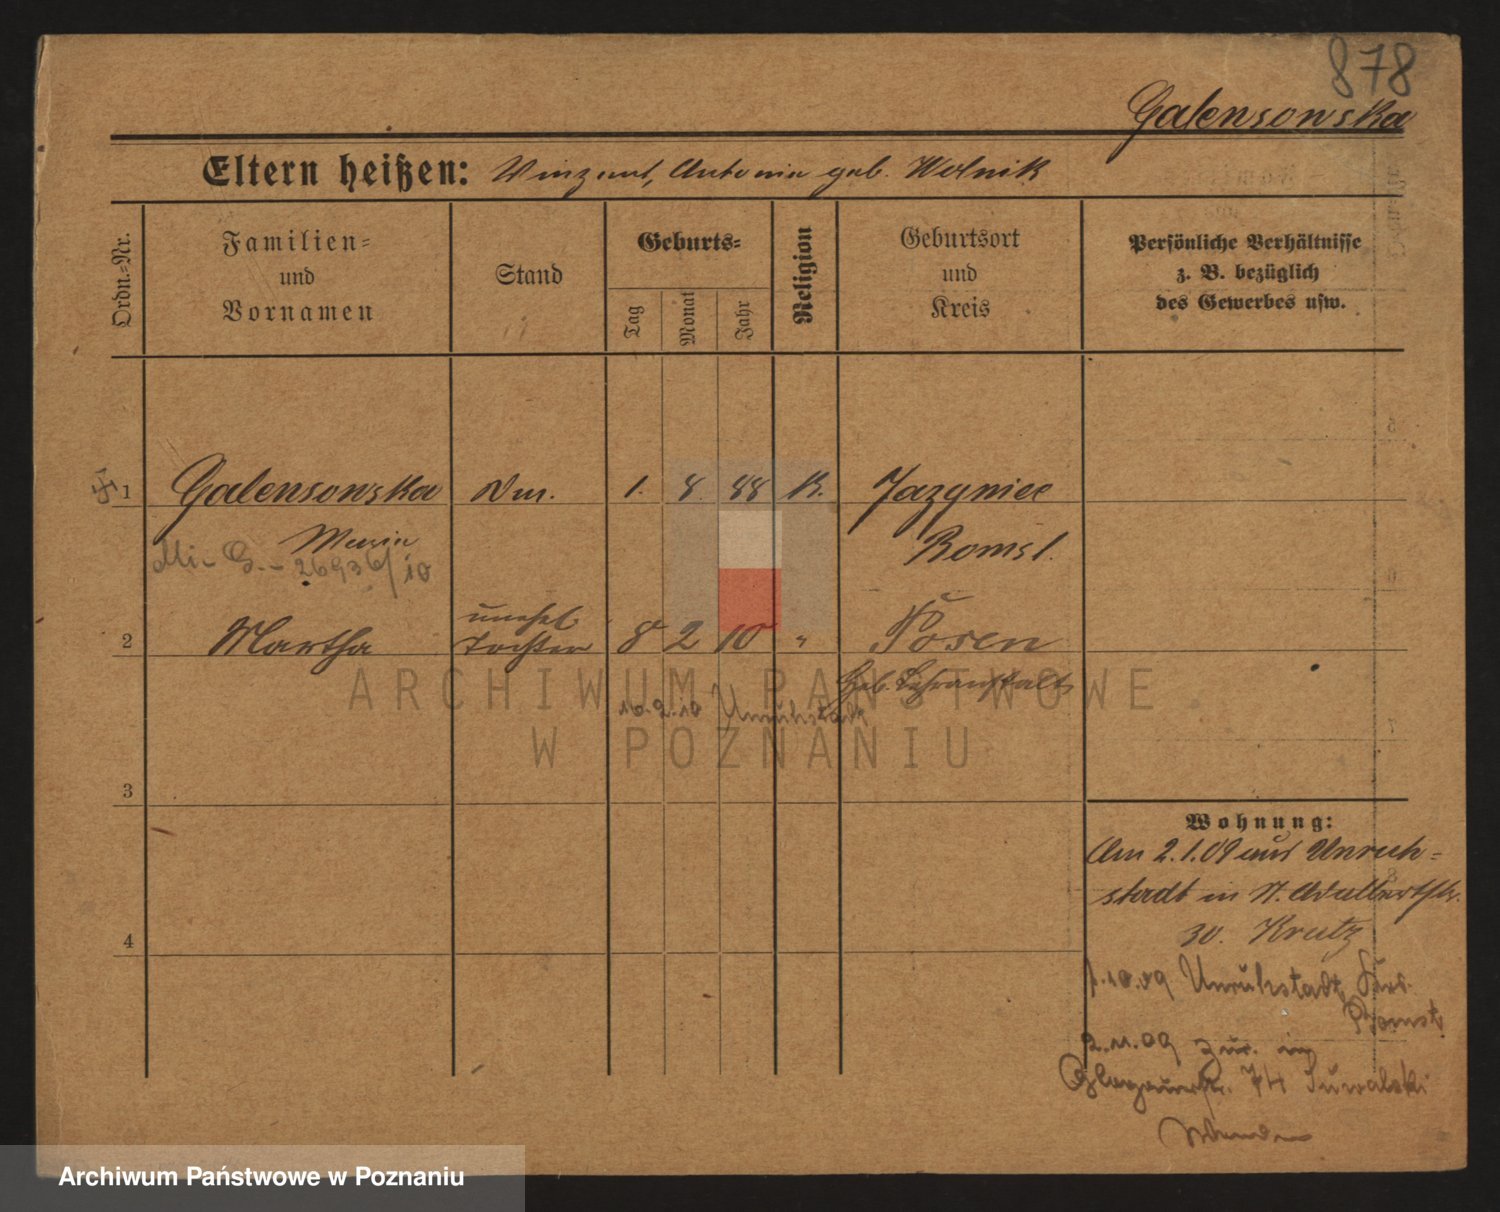 878
Galensowska
Eltern heißen: Vinzent, Antonie geb. Wolnik
Ordn.-Nr.
Familien-
und
Vornamen
Stand
Geburts-
Tag
Monat
Jahr
Religion
Geburtsort
und
Kreis
Persönliche Verhältnisse
z. B. bezüglich
des Gewerbes usw.
1 Galensowska 1. 8. 88 K. Jazyniec
Maria Bomst.
Mi- G.- 26936/10
unehel
2 Martha Tochter 8 2 10 " Posen
Geb. Lehranstalt
10.2.10 Unruhstadt
3
4
Wohnung:
Am 2.1.09 aus Unruh-
stadt in St. Adalbertstr.
30. Krutz
1.10.09 Unruhstadt, Krs.
Bomst
2.11.09 zur. in
Glogauerstr. 74 Suwalski
ARCHIWUM PAŃSTWOWE
W POZNANIU
Archiwum Państwowe w Poznaniu